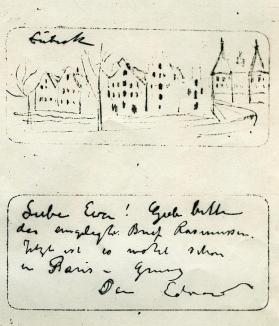 Lübeck
Liebe Eva! Gieb bitte
das eingelegte Brief Rasmussen.
Jetzt ist es wohl schon
in Paris – Gruss
Dein Edvard